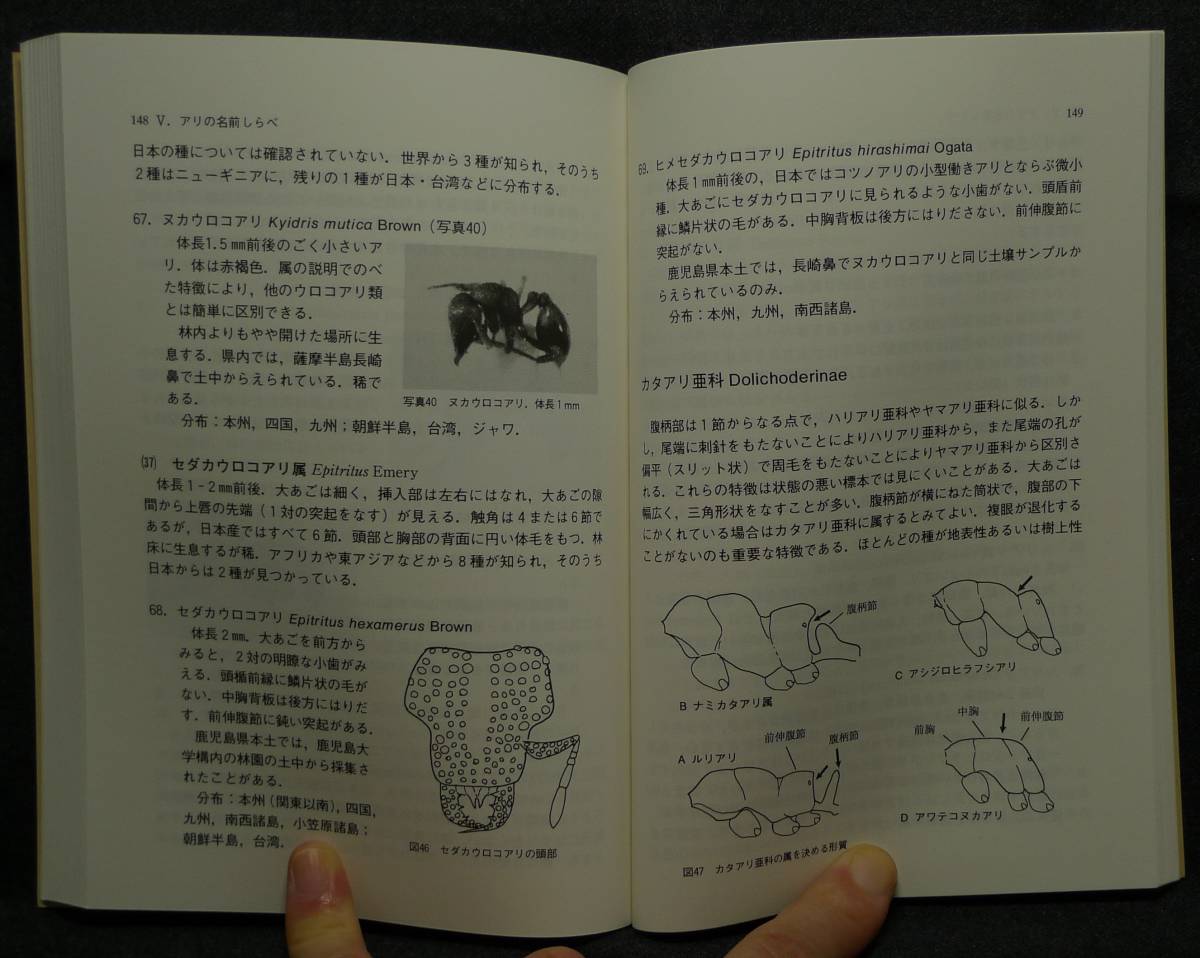 148 Ⅴ．アリの名前しらべ
日本の種については確認されていない．世界から３種が知られ，そのうち
２種はニューギニアに，残りの１種が日本・台湾などに分布する．
67．ヌカウロコアリ Kyidris mutica Brown（写真40）
体長1.5㎜前後のごく小さいア
リ．体は赤褐色．属の説明でのべ
た特徴により，他のウロコアリ類
とは簡単に区別できる．
林内よりもやや開けた場所に生
息する．県内では，薩摩半島長崎
鼻で土中からえられている．稀で
ある．
写真40 ヌカウロコアリ．体長１mm
分布：本州，四国，九州；朝鮮半島，台湾，ジャワ．
(37) セダカウロコアリ属 Epitritus Emery
体長１-２㎜前後．大あごは細く，挿入部は左右にはなれ，大あごの隙
間から上唇の先端（１対の突起をなす）が見える．触角は４または６節で
あるが，日本産ではすべて６節．頭部と胸部の背面に円い体毛をもつ．林
床に生息するが稀．アフリカや東アジアなどから８種が知られ，そのうち
日本からは２種が見つかっている．
68．セダカウロコアリ Epitritus hexamerus Brown
体長２㎜．大あごを前方から
みると，２対の明瞭な小歯がみ
える．頭楯前縁に鱗片状の毛が
ない．中胸背板は後方にはりだ
す．前伸腹節に鈍い突起がある．
鹿児島県本土では，鹿児島大
学構内の林園の土中から採集さ
れたことがある．
分布：本州（関東以南），四国，
九州，南西諸島，小笠原諸島；
朝鮮半島，台湾．
図46 セダカウロコアリの頭部
149
69．ヒメセダカウロコアリ Epitritus hirashimai Ogata
体長１㎜前後の，日本ではコツノアリの小型働きアリとならぶ微小
種．大あごにセダカウロコアリに見られるような小歯がない．頭盾前
縁に鱗片状の毛がある．中胸背板は後方にはりださない．前伸腹節に
突起がない．
鹿児島県本土では，長崎鼻でヌカウロコアリと同じ土壌サンプルか
らえられているのみ．
分布：本州，九州，南西諸島．
カタアリ亜科 Dolichoderinae
腹柄部は１節からなる点で，ハリアリ亜科やヤマアリ亜科に似る．しか
し，尾端に刺針をもたないことによりハリアリ亜科から，また尾端の孔が
偏平（スリット状）で周毛をもたないことによりヤマアリ亜科から区別さ
れる．これらの特徴は状態の悪い標本では見にくいことがある．大あごは
幅広く，三角形状をなすことが多い．腹柄節が横にねた筒状で，腹部の下
にかくれている場合はカタアリ亜科に属するとみてよい．複眼が退化する
ことがないのも重要な特徴である．ほとんどの種が地表性あるいは樹上性
腹柄節
B ナミカタアリ属
C アシジロヒラフシアリ
A ルリアリ
前伸腹節
腹柄節
前胸
中胸
前伸腹節
D アワテコヌカアリ
図47 カタアリ亜科の属を決める形質